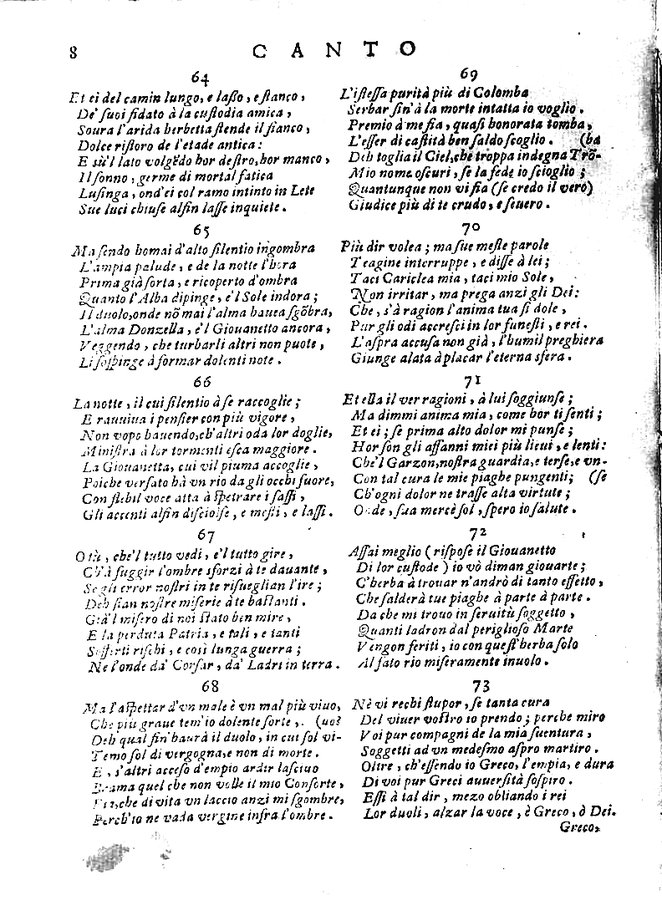 8 CANTO
64
Et ei del camin lungo, e lasso, e stanco,
De' suoi fidato à la custodia amica,
Soura l'arida herbetta stende il fianco,
Dolce ristoro de l'etade antica:
E sù'l lato volgēdo hor destro, hor manco,
Il sonno, germe di mortal fatica
Lusinga, ond'ei col ramo intinto in Lete
Sue luci chiuse alfin lasse inquiete.
65
Ma sendo homai d'alto silentio ingombra
L'ampia palude, e de la notte l'hora
Prima già sorta, e ricoperto d'ombra
Quanto l'Alba dipinge, e'l Sole indora;
Il duolo, onde nō mai l'alma hauea sgōbra,
L'alma Donzella, e'l Giouanetto ancora,
Veggendo, che turbarli altri non puote,
Li sospinge à formar dolenti note.
66
La notte, il cui silentio à se raccoglie;
E rauuiua i pensier con più vigore,
Non vopo hauendo, ch'altri oda lor doglie,
Ministra à lor tormenti esca maggiore.
La Giouanetta, cui vil piuma accoglie,
Poiche versato hà vn rio da gli occhi fuore,
Con flebil voce atta à spetrare i sassi,
Gli accenti alfin disciolse, e mesti, e lassi.
67
O tù, che'l tutto vedi, e'l tutto gire,
Ch'à fuggir l'ombre sforzi à te dauante,
Se gli error nostri in te risueglian l'ire;
Deh sian nostre miserie à te bastanti.
Già'l misero di noi stato ben mire,
E la perduta Patria, e tali, e tanti
Sofferti rischi, e così lunga guerra;
Ne l'onde da' Corsar, da' Ladri in terra.
68
Ma l'aspettar d'vn male è vn mal più viuo,
Che più graue tem'io dolente sorte,. (uo?
Deh qual fin haurà il duolo, in cui sol vi-
Temo sol di vergogna, e non di morte.
E, s'altri acceso d'empio ardir lasciuo
Brama quel che non volle il mio Consorte,
Fia, che di vita vn laccio anzi mi sgombre,
Perch'io ne vada vergine infra l'ombre.
69
L'istessa purità più di Colomba
Serbar fin'à la morte intatta io voglio.
Premio à me fia, quasi honorata tomba,
L'esser di castità ben saldo scoglio. (ba
Deh toglia il Ciel, che troppa indegna Trō-
Mio nome oscuri, se la fede io scioglio;
Quantunque non vi sia (se credo il vero)
Giudice più di te crudo, e seuero.
70
Più dir volea; ma sue meste parole
Teagine interruppe, e disse à lei;
Taci Cariclea mia, taci mio Sole,
Non irritar, ma prega anzi gli Dei:
Che, s'à ragion l'anima tua si dole,
Pur gli odi accresci in lor funesti, e rei.
L'aspra accusa non già, l'humil preghiera
Giunge alata à placar l'eterna sfera.
71
Et ella il ver ragioni, à lui soggiunse;
Ma dimmi anima mia, come hor ti senti;
Et ei; se prima alto dolor mi punse;
Hor son gli affanni miei più lieui, e lenti:
Che'l Garzon, nostra guardia, e terse, e vn-
Con tal cura le mie piaghe pungenti; (se
Ch'ogni dolor ne trasse alta virtute;
Onde, sua mercè sol, spero io salute.
72
Assai meglio (rispose il Giouanetto
Di lor custode) io vò diman giouarte;
C'herba à trouar n'andrò di tanto effetto,
Che salderà tue piaghe à parte à parte.
Da che mi trouo in seruitù soggetto,
Quanti ladron dal periglioso Marte
Vengon feriti, io con quest'herba solo
Al fato rio miseramente inuolo.
73
Nè vi rechi stupor, se tanta cura
Del viuer vostro io prendo; perche miro
Voi pur compagni de la mia suentura,
Soggetti ad vn medesmo aspro martiro.
Oltre, ch'essendo io Greco, l'empia, e dura
Di voi pur Greci auuersità sospiro.
Essi à tal dir, mezo obliando i rei
Lor duoli, alzar la voce, è Greco, ò Dei.
Greco,